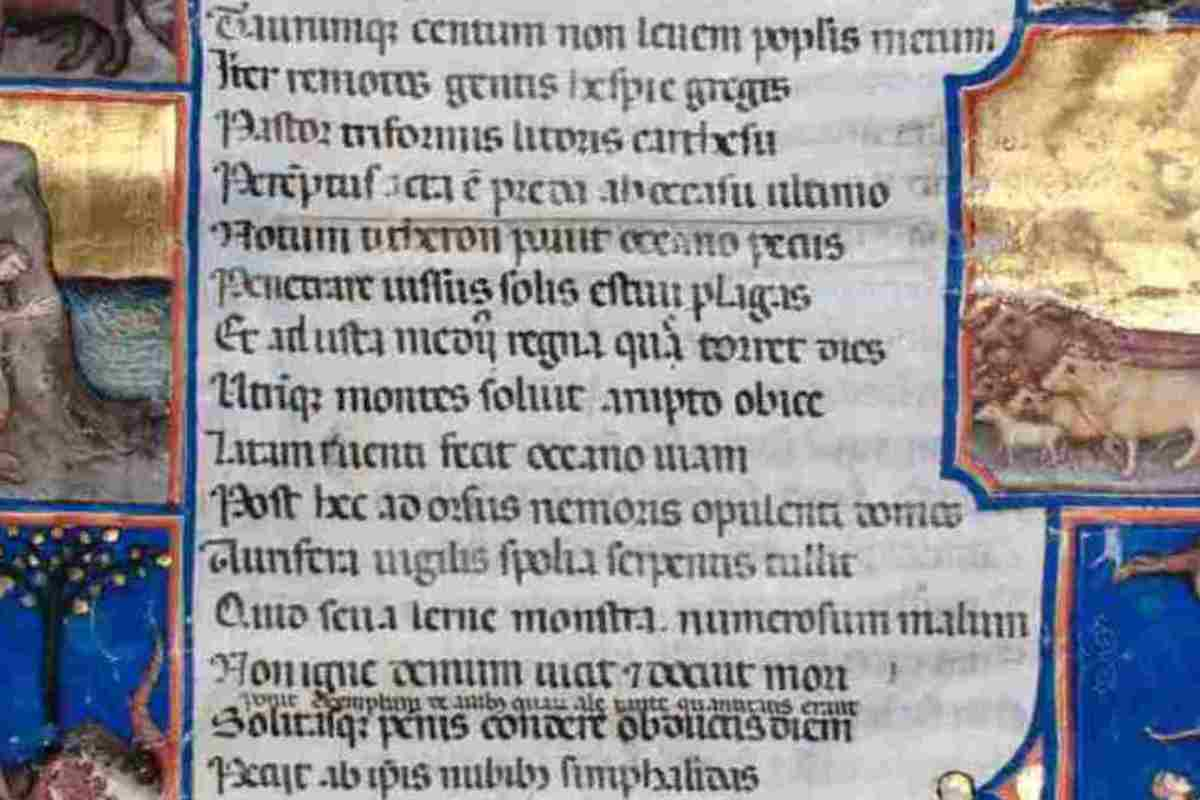 Taurumq; centum non leuem poplis metum
Inter remotos gentis hesperie greges
Pastor triformis litoris carthesii
Perẽptus acta ẽ preda ab occasu ultimo
Notum citheron pauit occeano pecus
Penetrare iussus solis estiui plagas
Et adusta medij regna quã torret dies
Utrinq; montes soluit abrupto obice
Latam ruenti fecit occeano uiam
Post hec adorsus nemoris opulenti domos
Aurifera uigilis spolia serpentis tullit
Quid seua lerne monstra. numerosum malum
Non igne demum uicit ⁊ docuit mori
quantitatis erant
Solitasq; penis condere obductis diem
Petijt ab ip̃is nubibꝫ stimphalidas